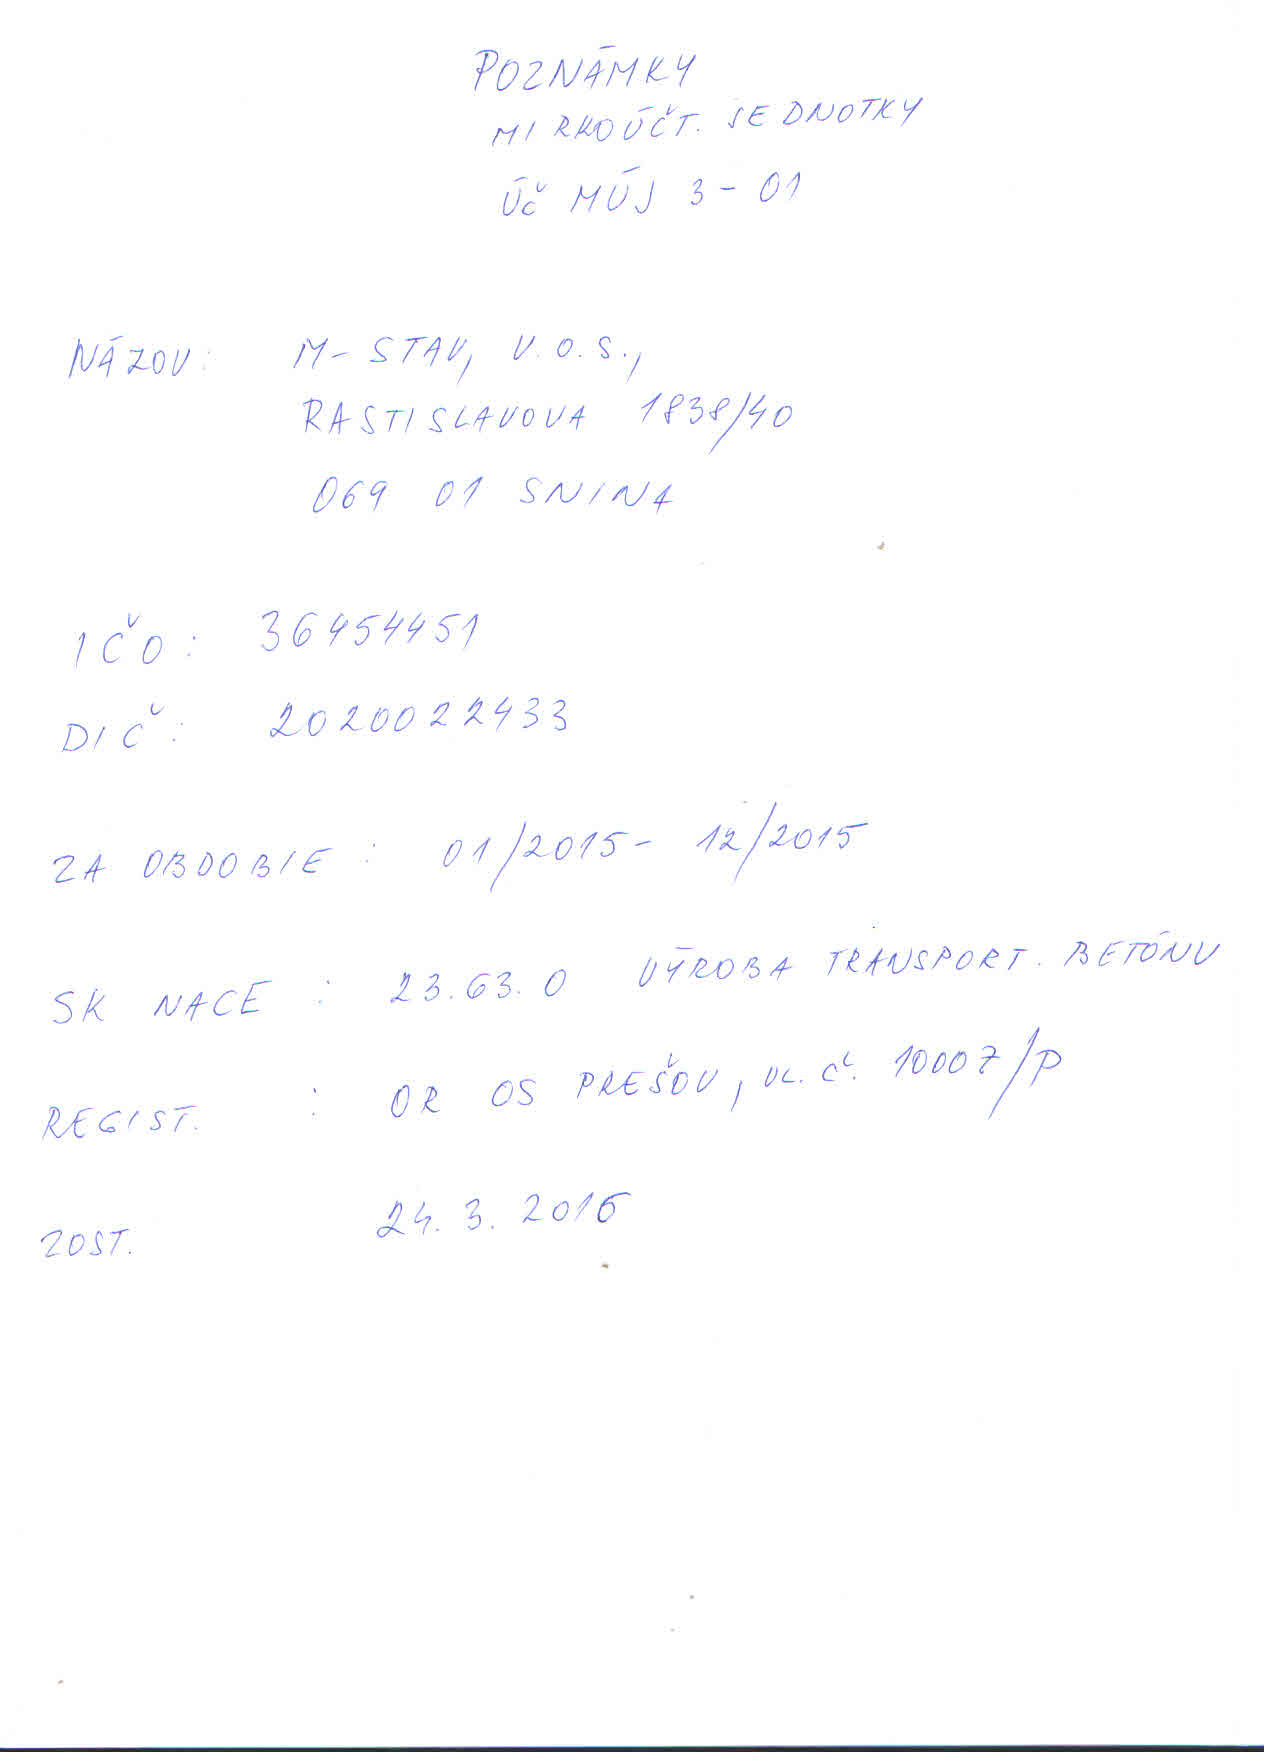 POZNÁMKY
MIRKOÚČT. JEDNOTKY
ÚČ MÚJ 3-01
NÁZOV: M-STAV, V.O.S.,
RASTISLAVOVA 1838/40
069 01 SNINA
IČO: 36454451
DIČ: 2020022433
ZA OBDOBIE: 01/2015 - 12/2015
SK NACE: 23.63.0 VÝROBA TRANSPORT. BETÓNU
REGIST.: OR OS PREŠOV, VL. Č. 10007/P
ZOST. 24.3.2016